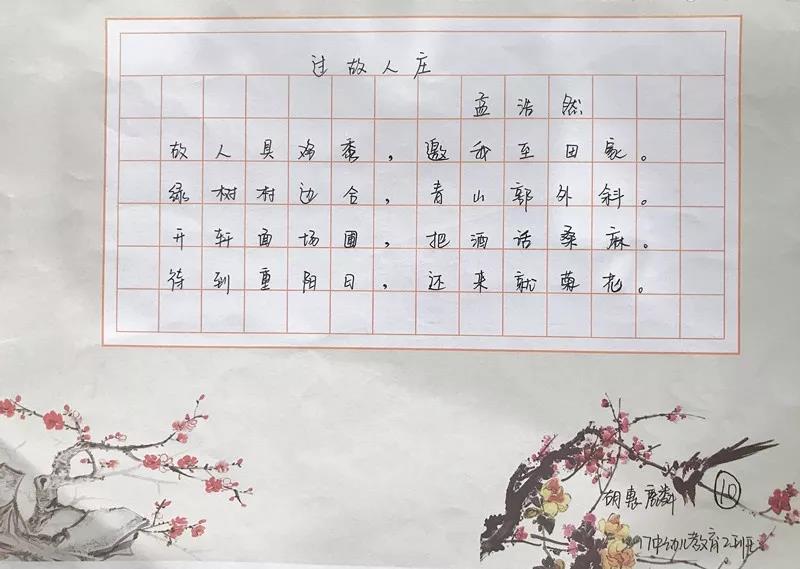 过故人庄
孟浩然
故人具鸡黍，邀我至田家。
绿树村边合，青山郭外斜。
开轩面场圃，把酒话桑麻。
待到重阳日，还来就菊花。
胡惠麟 10
17中幼儿教育2班